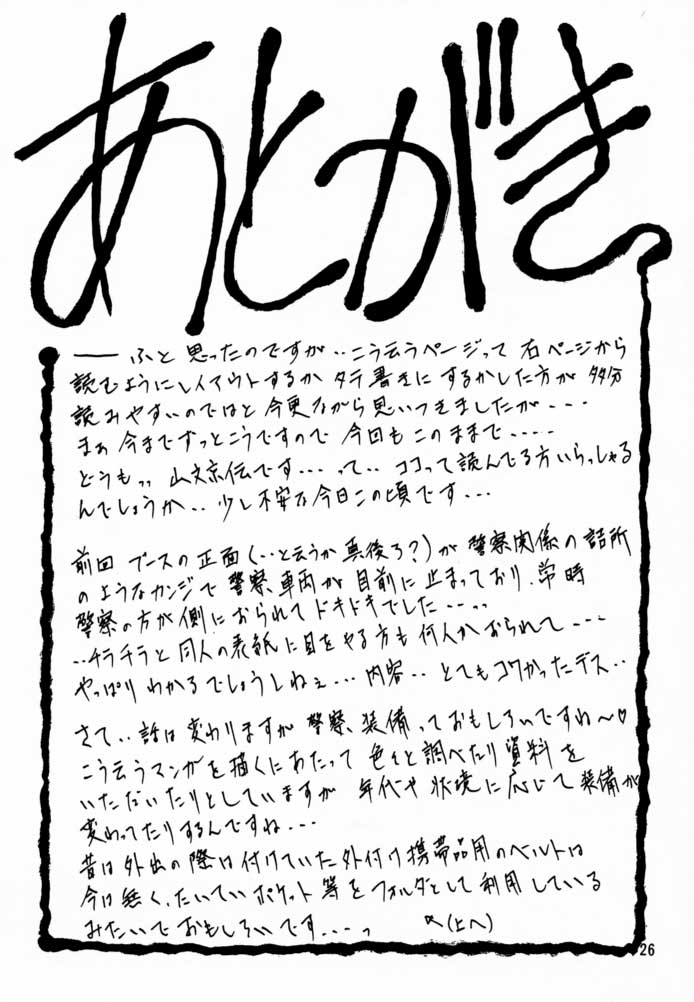 あとがき
── ふと思ったのですが‥こう云うページって右ページから
読むようにレイアウトするかタテ書きにするかした方が多分
読みやすいのではと今更ながら思いつきましたが---
まぁ今までずっとこうですので今回もこのままで-----
どうもっ、山文京伝です---って‥ココって読んでる方いらっしゃる
んでしょうか‥少し不安な今日この頃です---
前回ブースの正面(‥と云うか真後ろ?)が警察関係の詰所
のようなカンジで警察車両が目前に止まっており、常時
警察の方が側におられてドキドキでした---っ
‥チラチラと同人の表紙に目をやる方も何人かおられて---
やっぱりわかるでしょうしねぇ---内容‥とてもコワかったデス‥
さて‥話は変わりますが警察装備っておもしろいですね〜♡
こう云うマンガを描くにあたって色々と調べたり資料を
いただいたりとしていますが年代や状境に応じて装備が
変わってたりするんですね---
昔は外出の際は付けていた外付け携帯品用のベルトは
今は無く、たいていポケット等をフォルダとして利用している
みたいでおもしろいです---っ
(上へ)
26